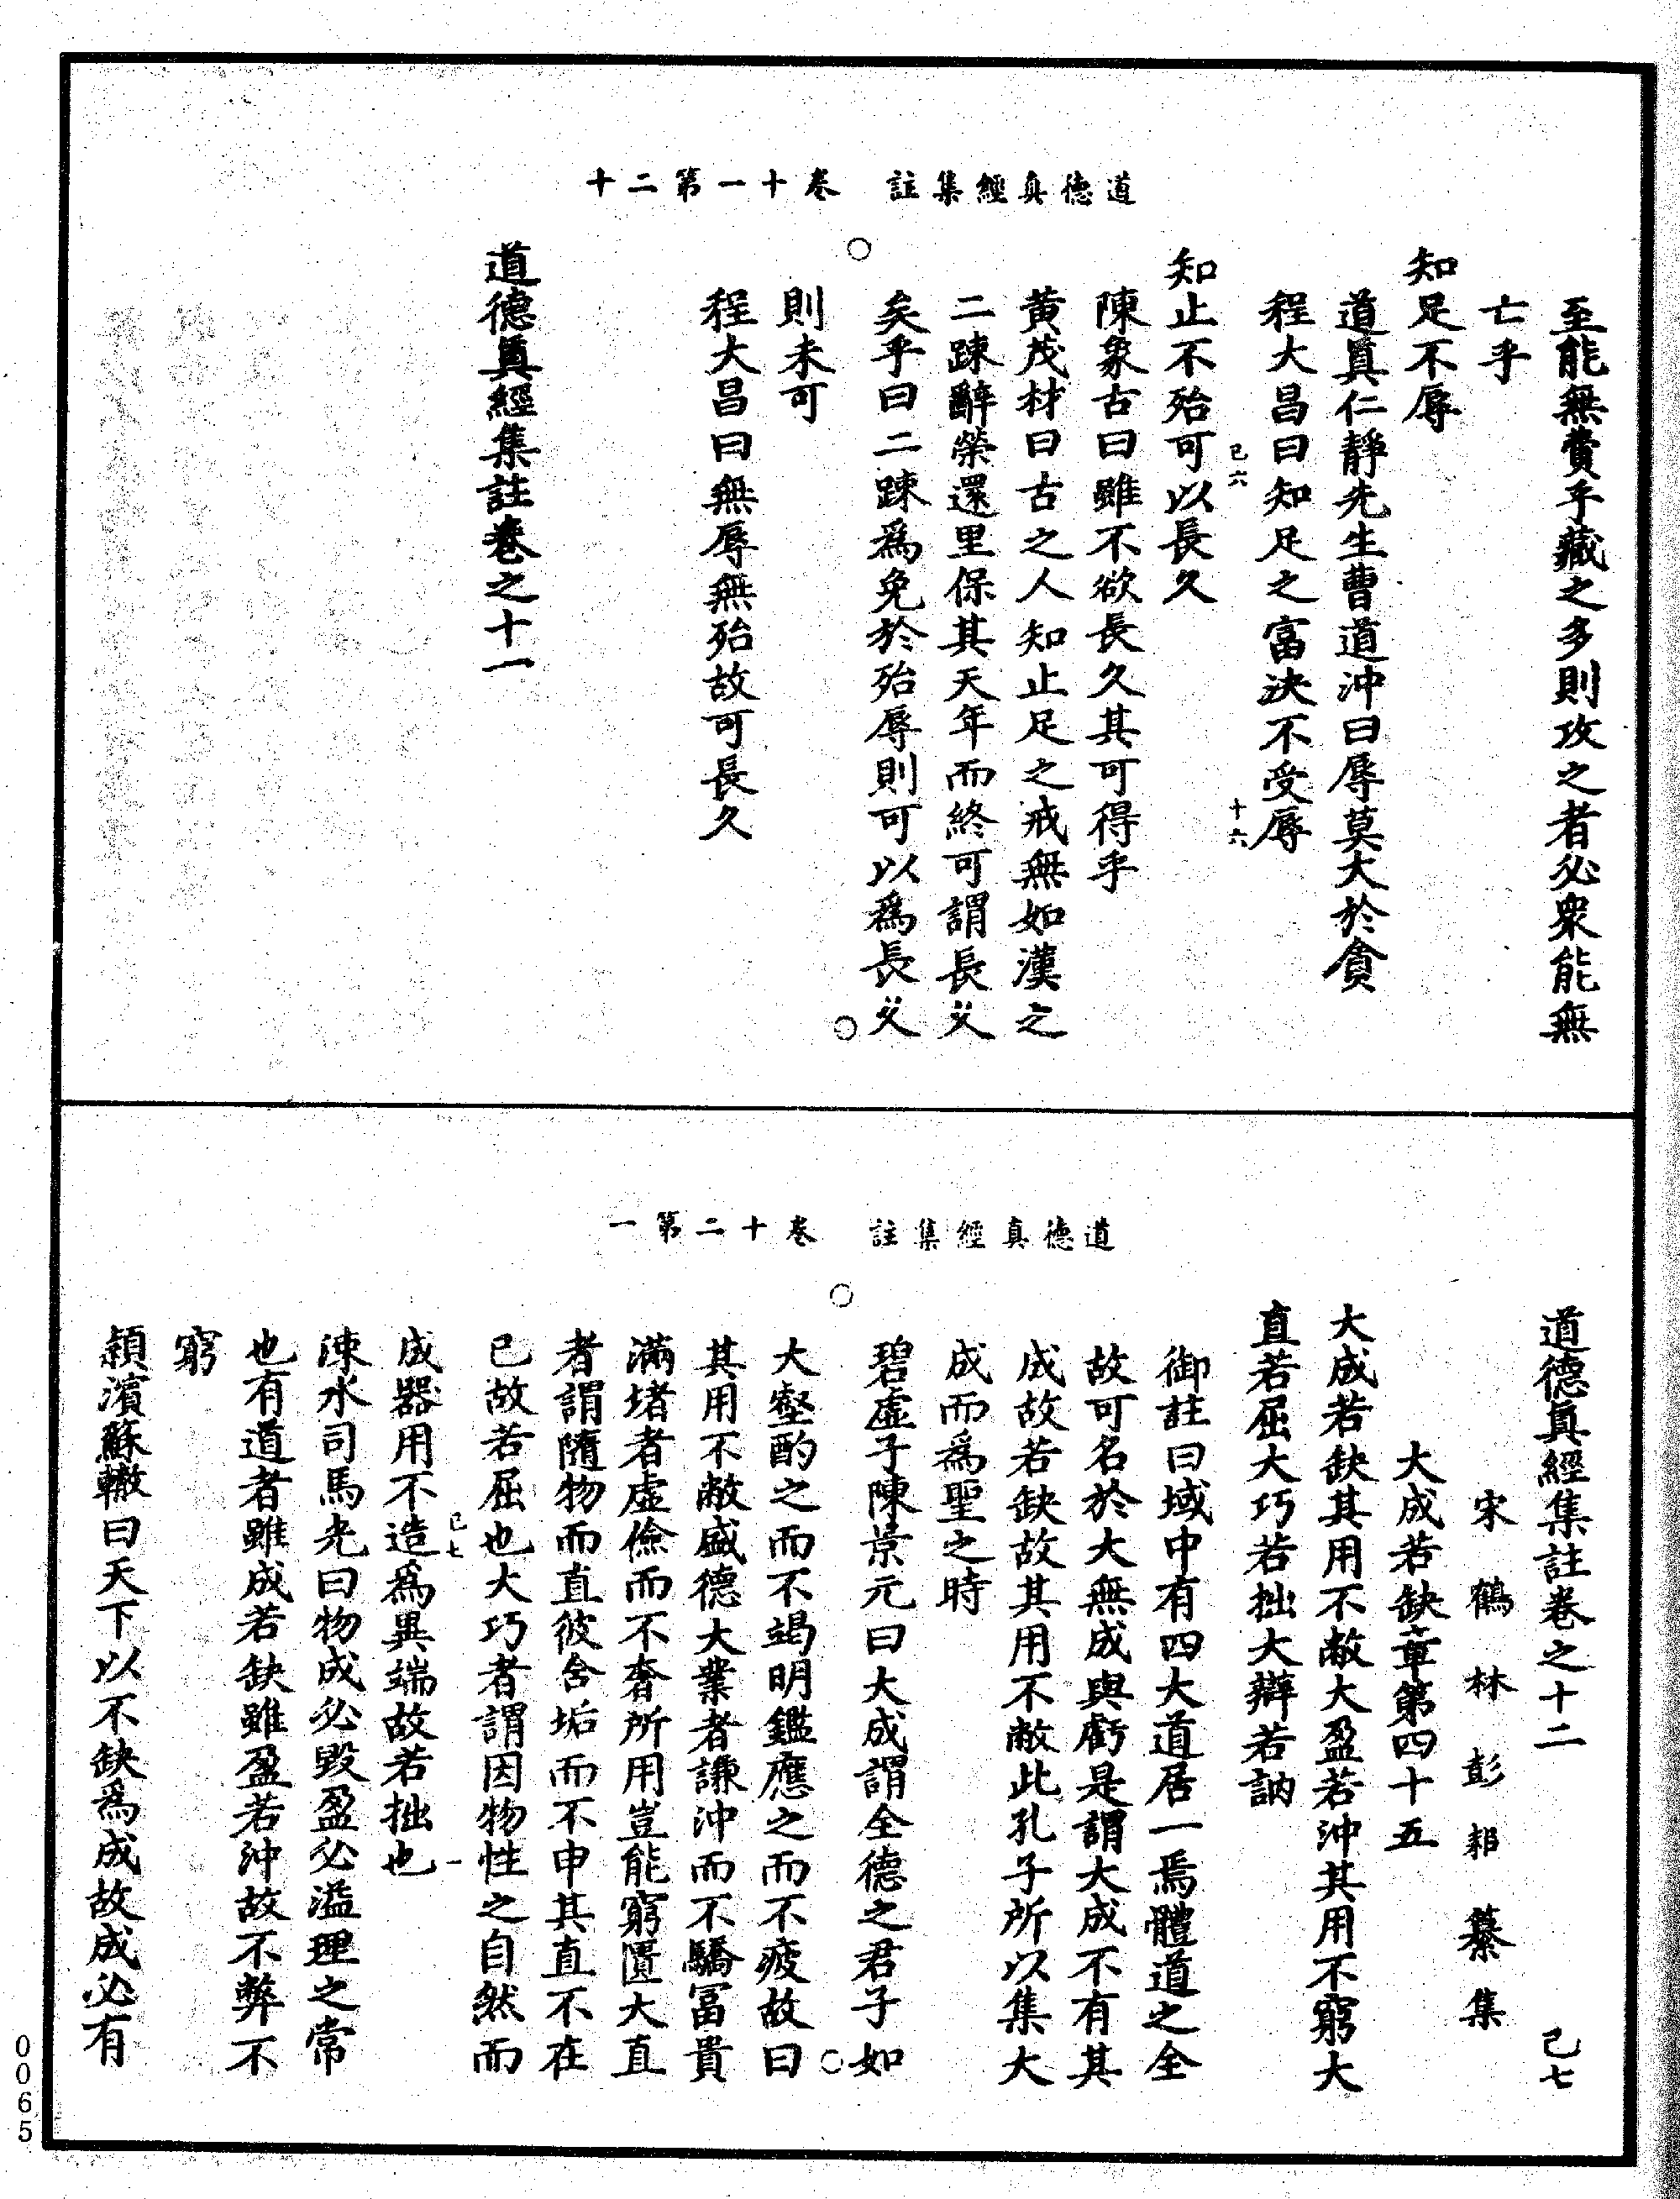 道德真經集註　卷十一第二十
至能無費乎藏之多則攻之者必衆能無
亡乎
知足不辱
道眞仁靜先生曹道沖曰辱莫大於貪
程大昌曰知足之富決不受辱
己六　十六
知止不殆可以長久
陳象古曰雖不欲長久其可得乎
黃茂材曰古之人知止足之戒無如漢之
二踈辭榮還里保其天年而終可謂長久
矣乎曰二踈爲免於殆辱則可以爲長久
則未可
程大昌曰無辱無殆故可長久
道德眞經集註卷之十一
道德真經集註　卷十二第一
道德眞經集註卷之十二　己七
宋鶴林彭耜纂集
大成若缺章第四十五
大成若缺其用不敝大盈若沖其用不窮大
直若屈大巧若拙大辯若訥
御註曰域中有四大道居一焉體道之全
故可名於大無成與虧是謂大成不有其
成故若缺故其用不敝此孔子所以集大
成而爲聖之時
碧虛子陳景元曰大成謂全德之君子如
大壑酌之而不竭明鑑應之而不疲故曰
其用不敝盛德大業者謙沖而不驕富貴
滿堵者虛儉而不奢所用豈能窮匱大直
者謂隨物而直彼含垢而不申其直不在
已故若屈也大巧者謂因物性之自然而
己七　一
成器用不造爲異端故若拙也
涑水司馬光曰物成必毀盈必溢理之常
也有道者雖成若缺雖盈若沖故不弊不
窮
頴濱蘇轍曰天下以不缺爲成故成必有
0065